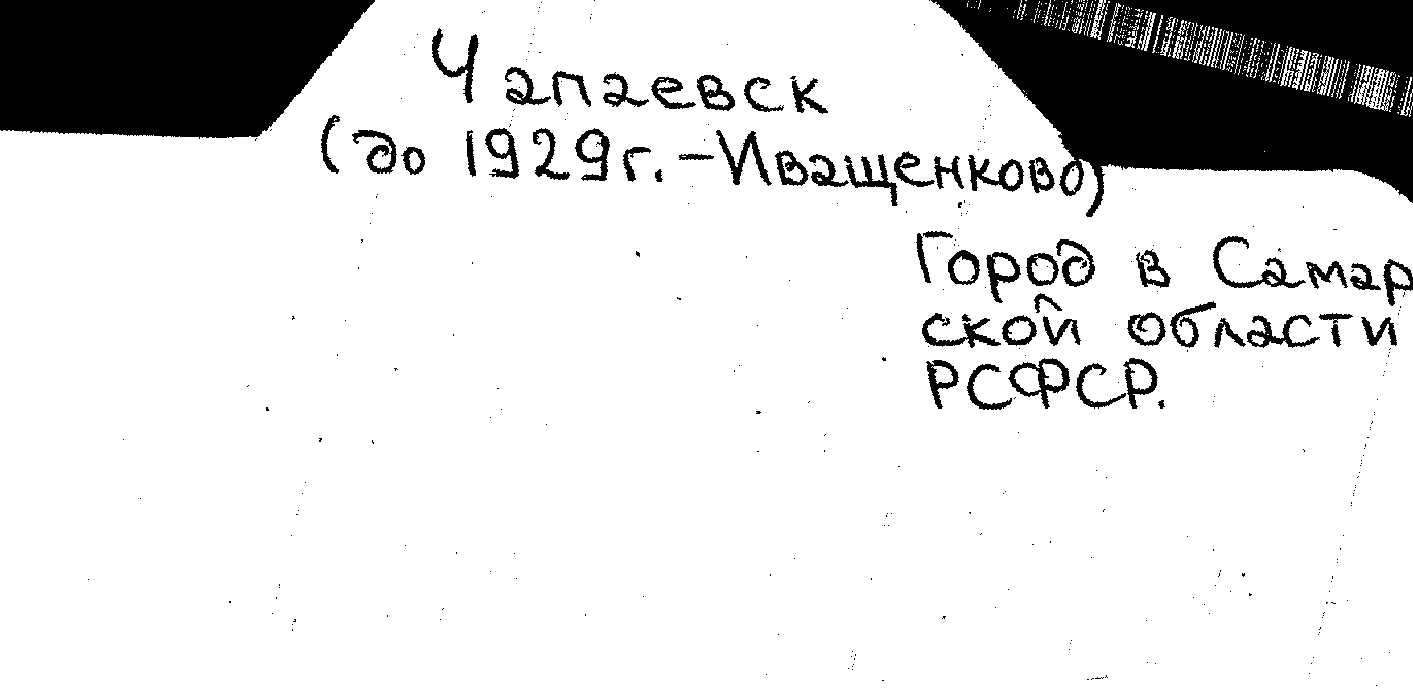 Чапаевск
(до 1929г. - Иващенково)
Город в Самар
ской области
РСФСР.